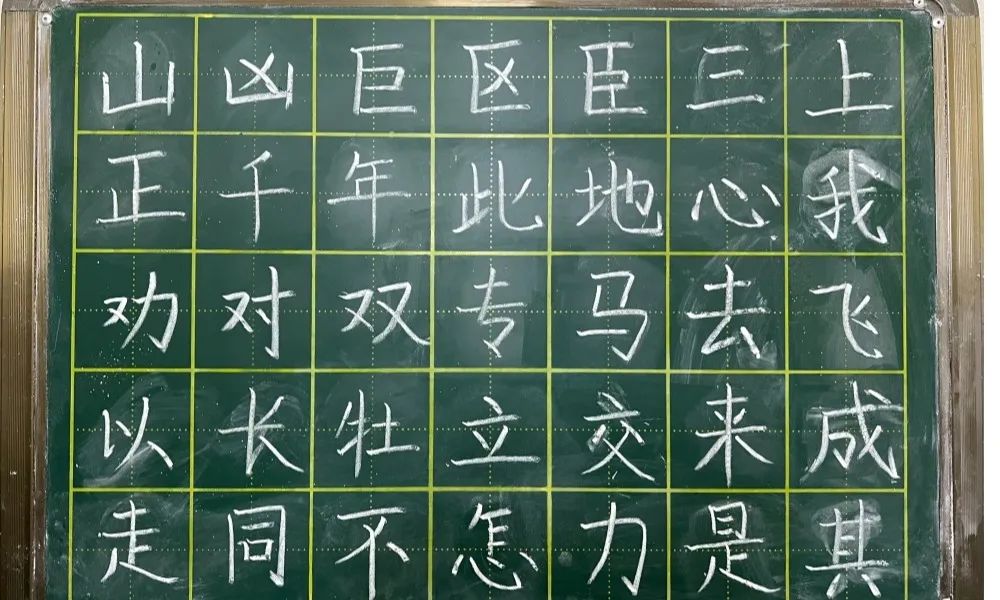 山凶巨区臣三上
正千年此地心我
劝对双专马去飞
以长牡立交来成
走同不怎力是其